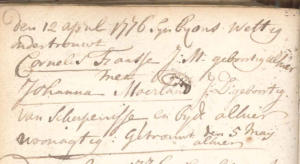 den 12 april 1776 Syn by ons wettig
ondertrouwt
Cornelis Fransse J:M: geboortig alhier
met
Johanna Moerland J:D: geboortig
van Scherpenisse en byde alhier
woonagtig: Getrouwt den 5 Maij
alhier
1776